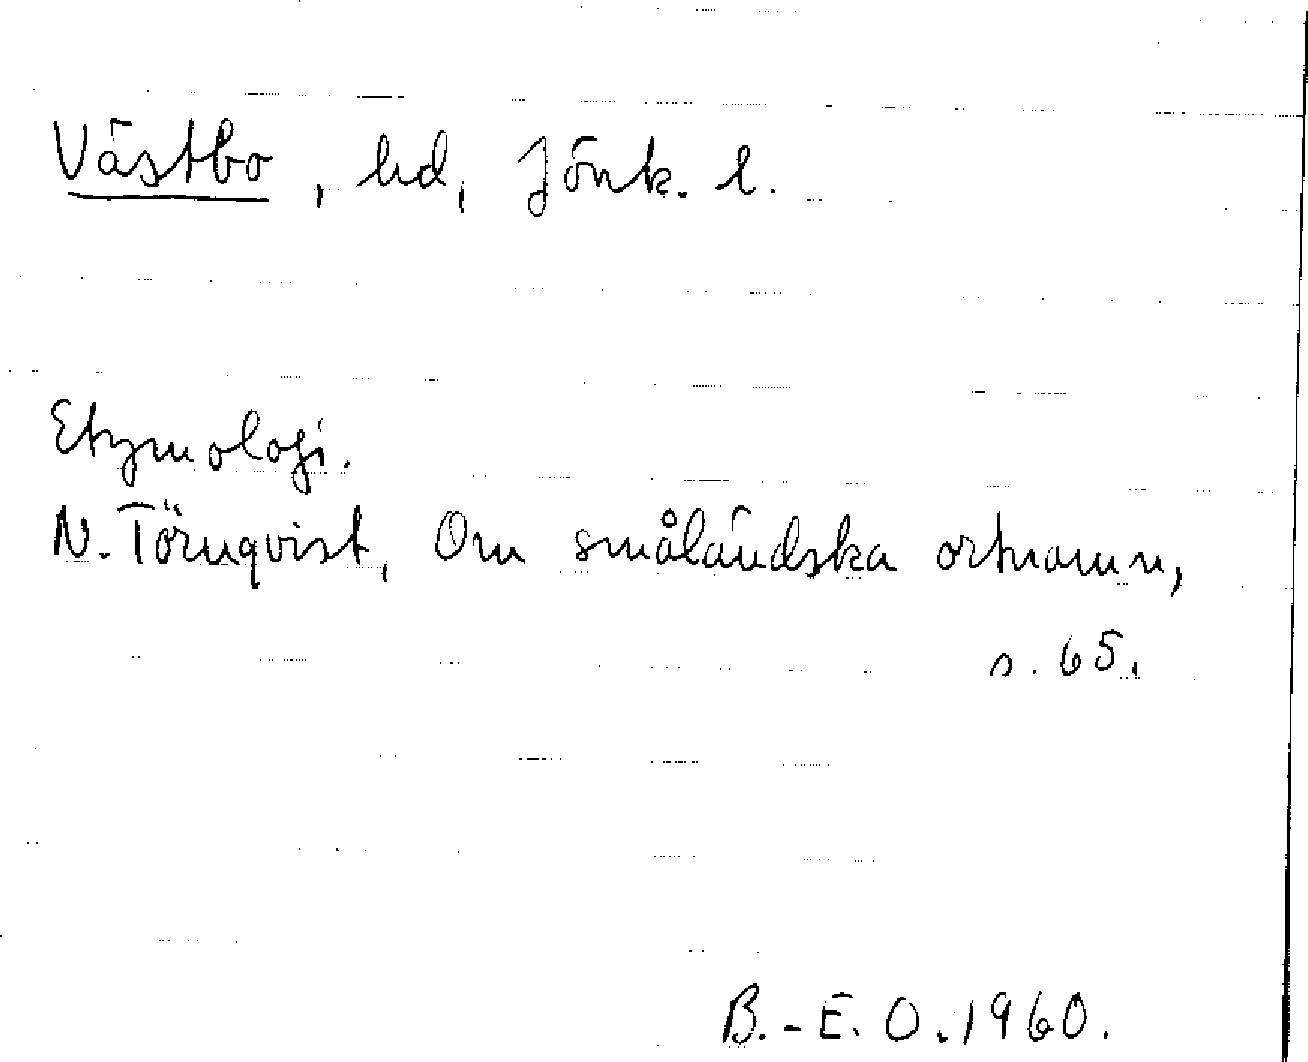 Västbo, hd, Jönk. l.
Etymologi.
N. Törnqvist, Om småländska ortnamn,
s. 65.
B.-E. O. 1960.